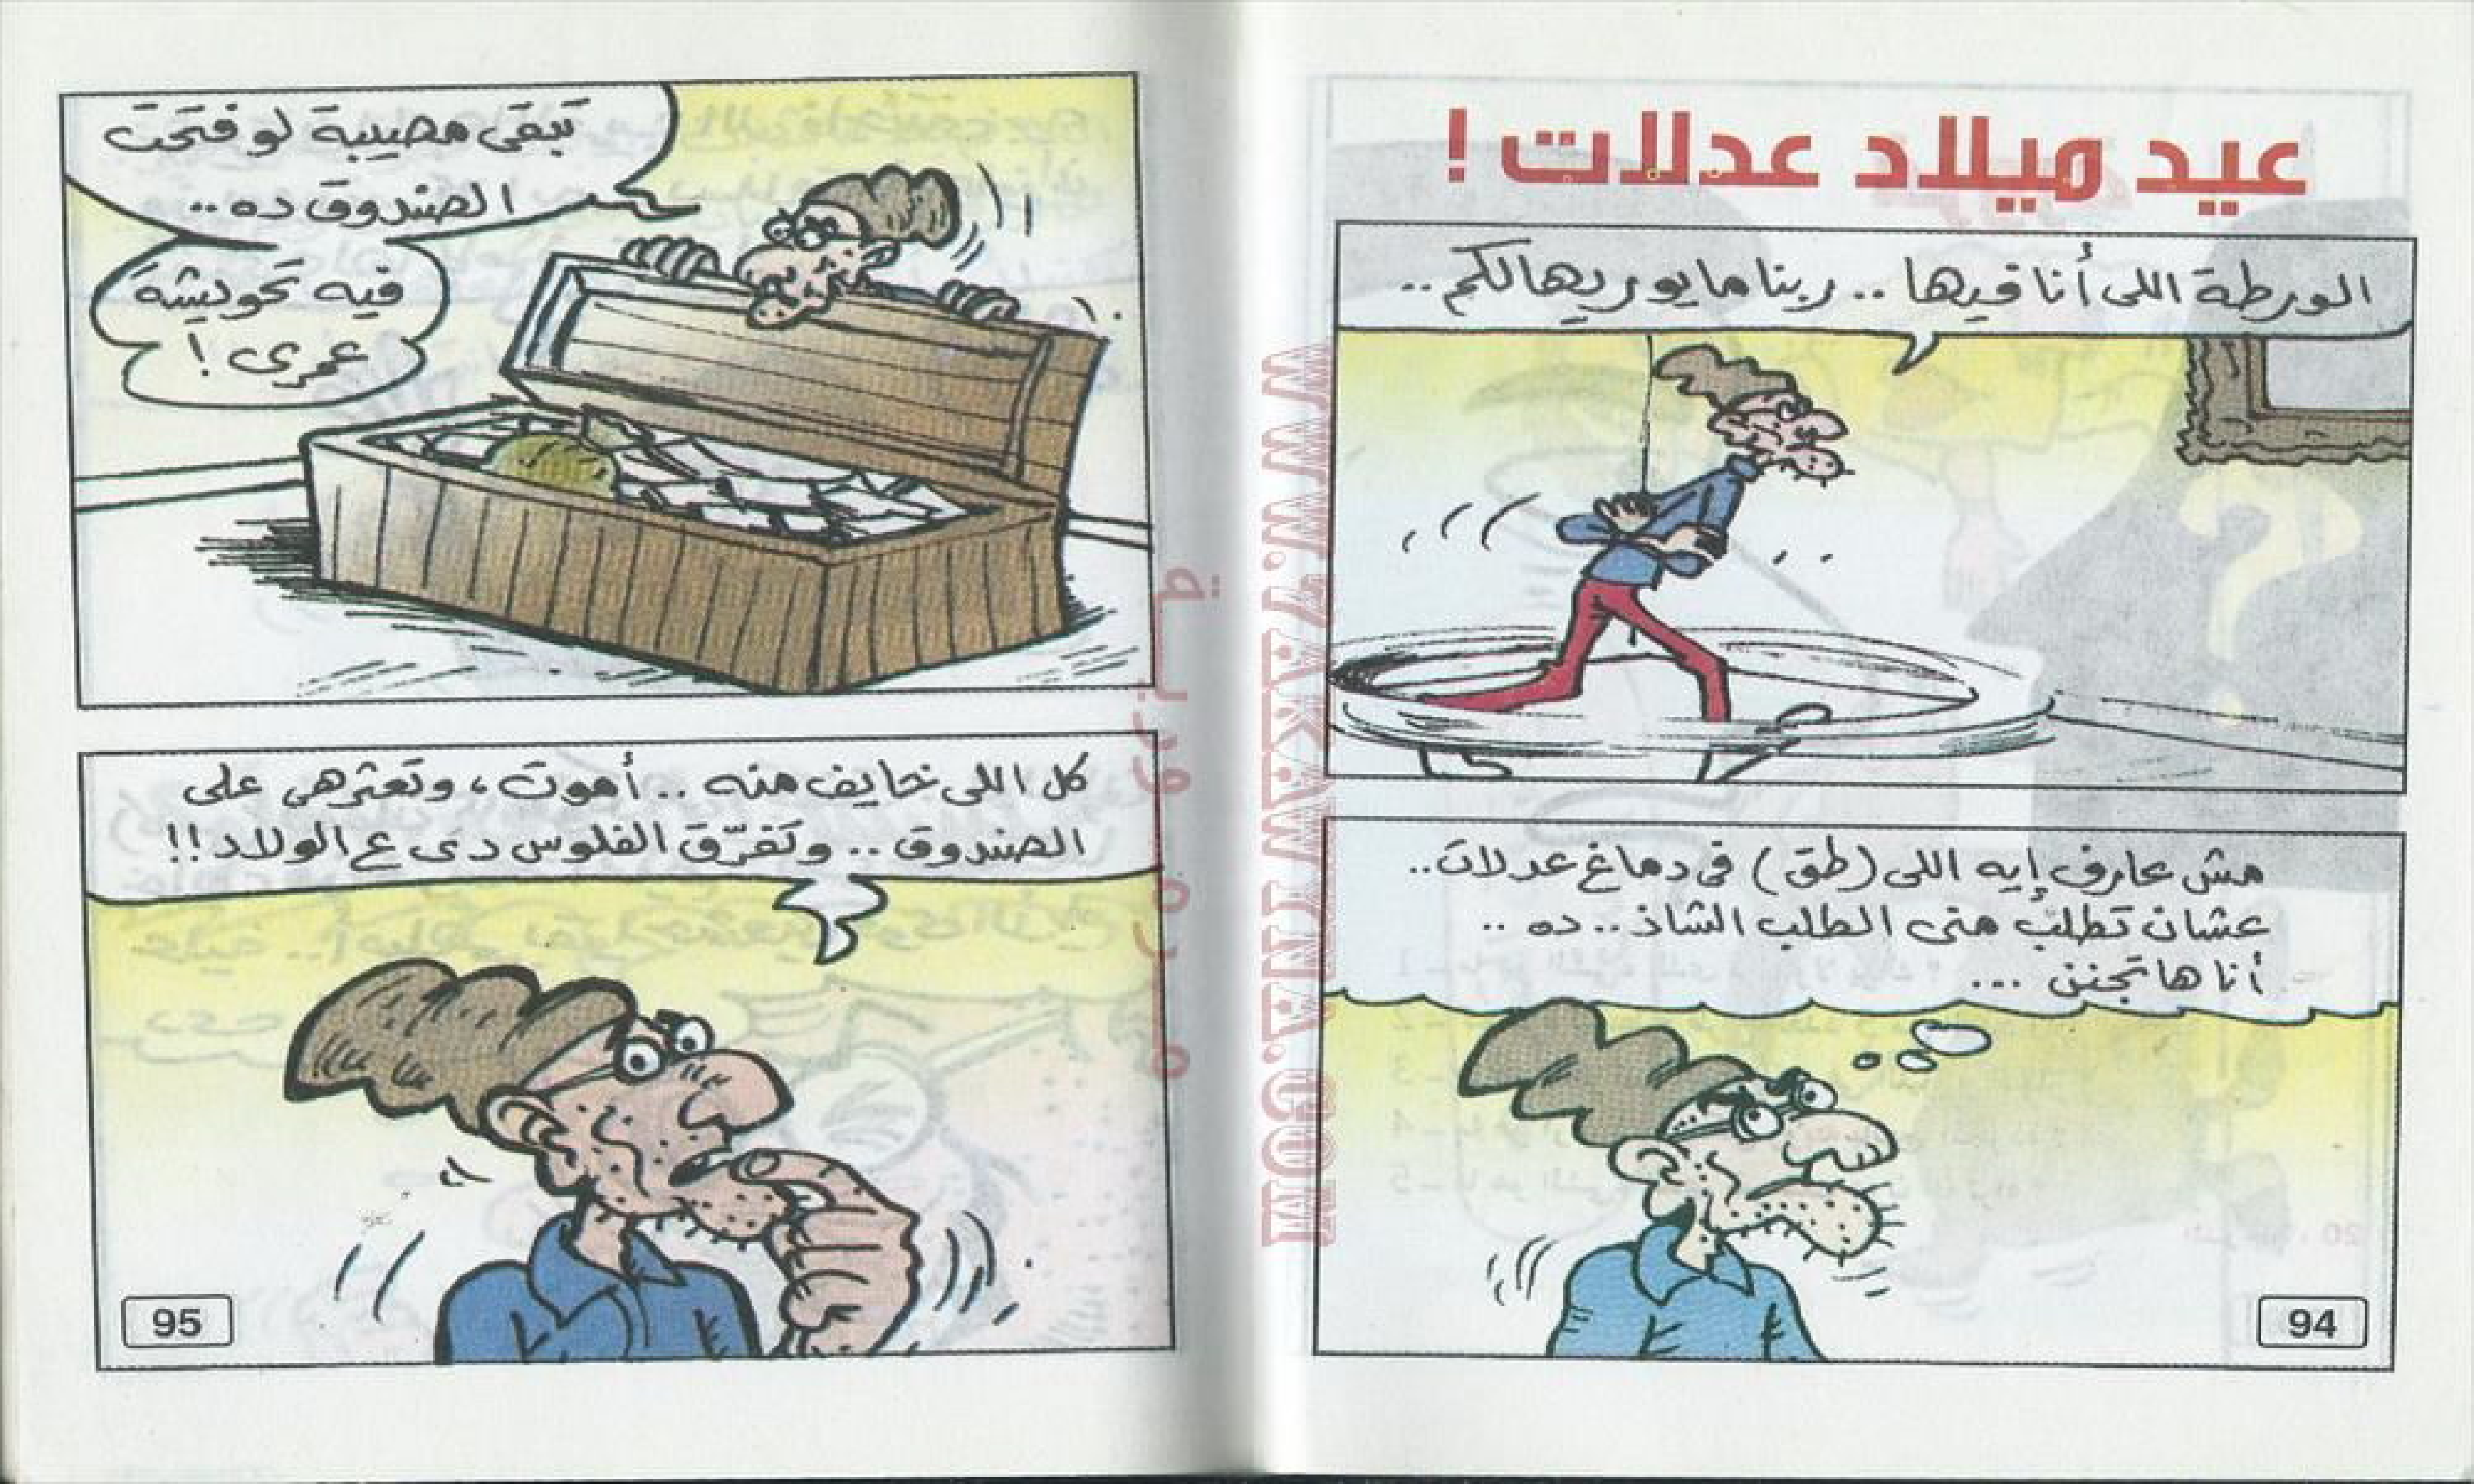 عيد ميلاد عدلات !
الورطة اللى أنا فيها .. ربنا ما يوريهالكم ..
مش عارف إيه اللى (طق) فى دماغ عدلات ..
عشان تطلب منى الطلب الشاذ .. ده ..
أنا هاتجنن ...
94
تبقى مصيبة لو فتحت
الصندوق ده ..
فيه تحويشة
عمرى !
كل اللى خايف منه .. أموت ، وتعثر هى على
الصندوق .. وتفرّق الفلوس دى ع الولاد !!
95
WWW.ARKAWNNA.COM